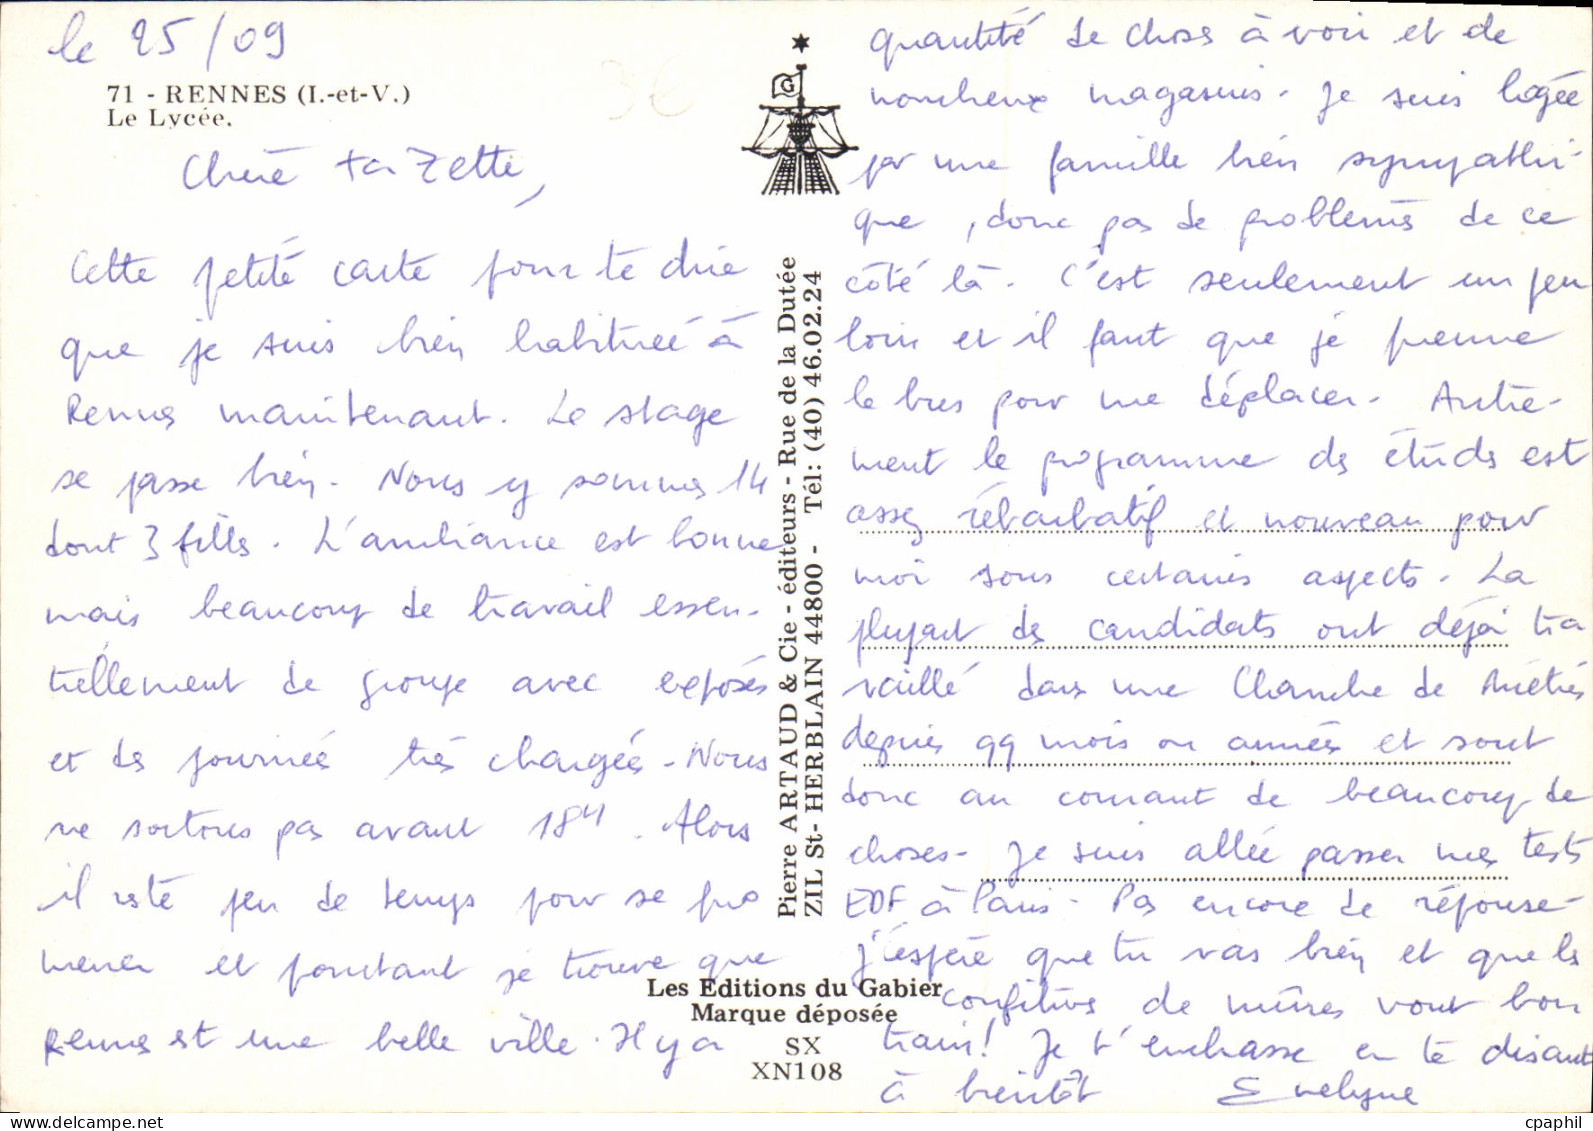 le 25/09
71 - RENNES (I.-et-V.)
Le Lycée.
3€
G
Chère ta Zette,
Cette petite carte pour te dire
que je suis bien habituée à
Rennes maintenant. Le stage
se passe bien. Nous y sommes 14
dont 3 filles. L'ambiance est bonne
mais beaucoup de travail essen-
tiellement de groupe avec exposés
et des journées très chargées. Nous
ne sortons pas avant 18H. Alors
il reste peu de temps pour se pro
mener et pourtant je trouve que
Rennes est une belle ville. Il y a
quantité de choses à voir et de
nombreux magasins. Je suis logée
par une famille bien sympathi-
que, donc pas de problèmes de ce
côté là. C'est seulement un peu
loin et il faut que je prenne
le bus pour me déplacer. Autre-
ment le programme des études est
assez rébarbatif et nouveau pour
moi sous certains aspects. La
plupart des candidats ont déjà tra
vaillé dans une Chambre de Métiers
depuis qq mois ou années et sont
donc au courant de beaucoup de
choses. Je suis allée passer mes tests
EDF à Paris. Pas encore de réponse.
J'espère que tu vas bien et que les
confitures de mûres vont bon
train! Je t'embrasse en te disant
à bientôt Evelyne
Pierre ARTAUD & Cie - éditeurs - Rue de la Dutée
ZIL St-HERBLAIN 44800 - Tél: (40) 46.02.24
Les Editions du Gabier
Marque déposée
SX
XN108
www.delcampe.net
cpaphil